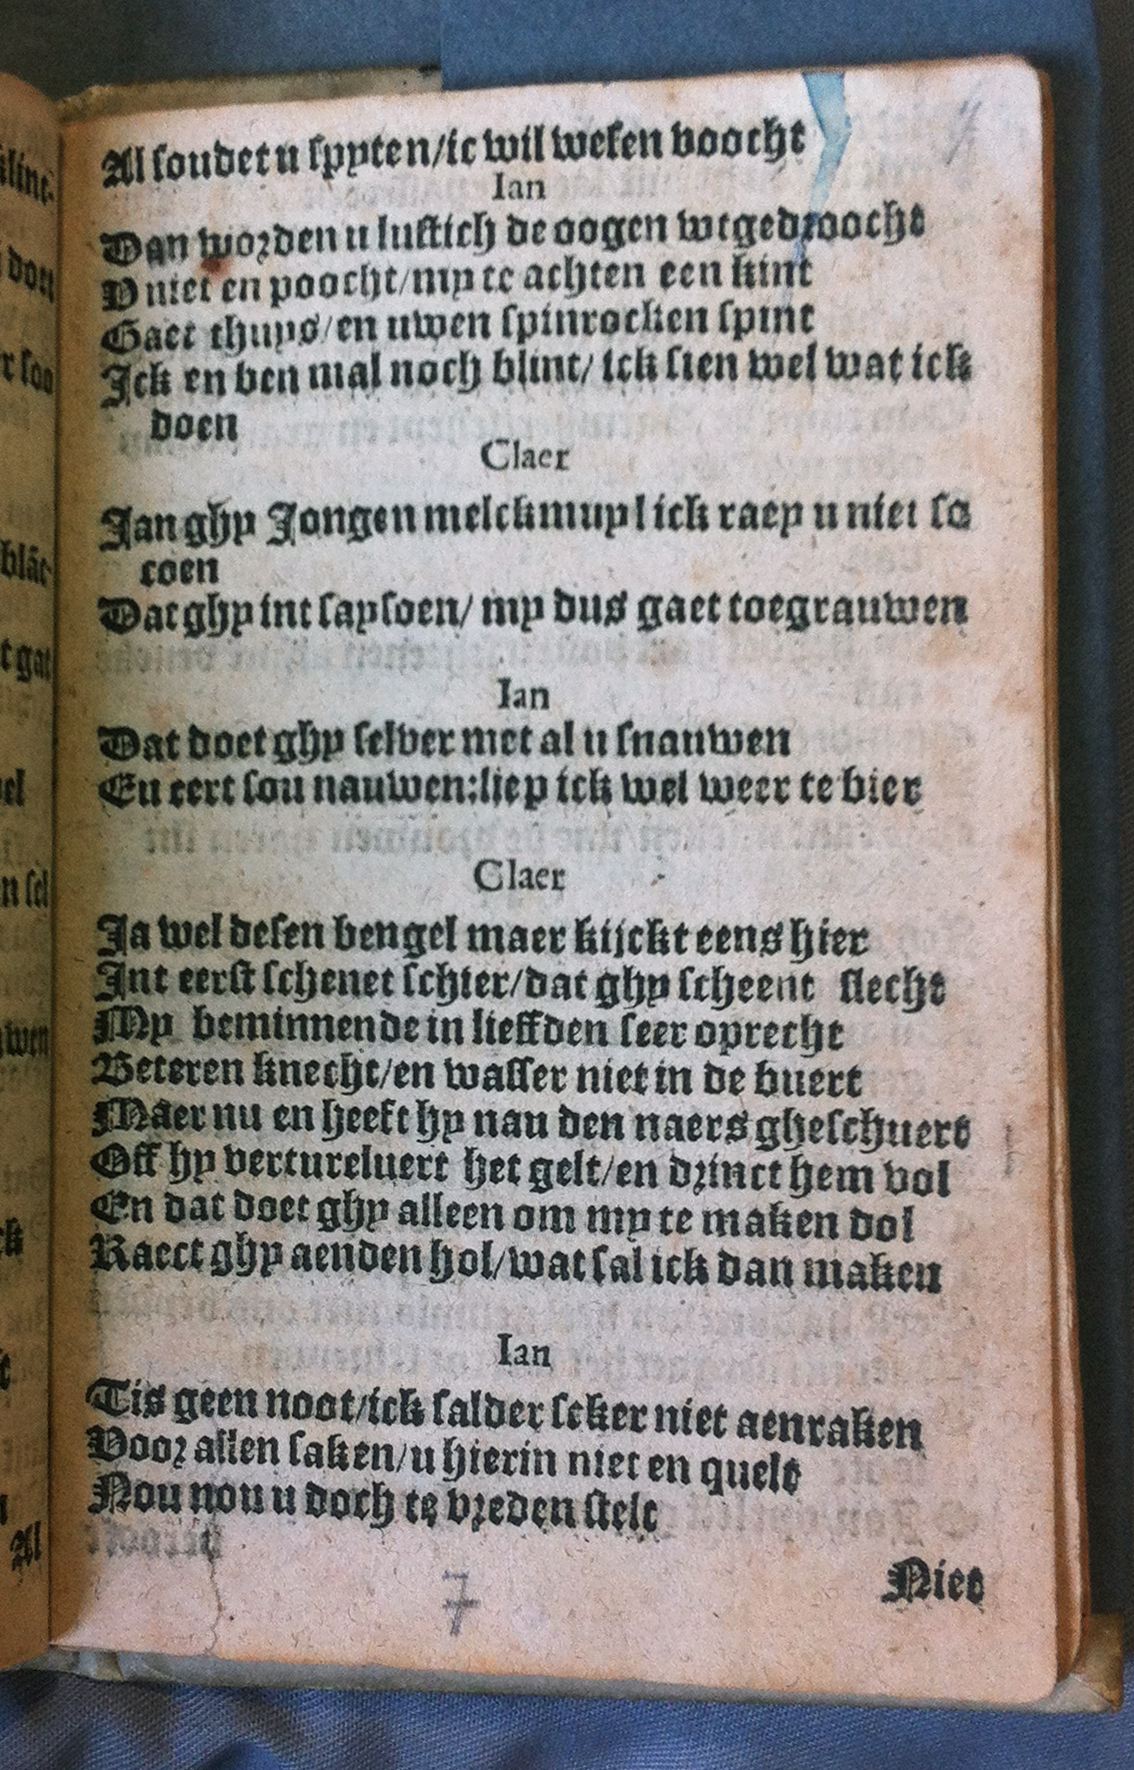 Al soudet u spyten/ic wil wesen voocht
Ian
Dan worden u lustich de oogen wtgedroocht
V niet en poocht/my te achten een kint
Gaet thuys/en uwen spinrocken spint
Ick en ben mal noch blint/ ick sien wel wat ick
doen
Claer
Jan ghy Jongen melckmuyl ick raey u niet so
coen
Dat ghy int saysoen/ my dus gaet toegrauwen
Ian
Dat doet ghy selver met al u snauwen
En eert sou nauwen:liep ick wel weer te bier
Claer
Ja wel desen bengel maer kijckt eens hier
Int eerst schenet schier/dat ghy scheent slecht
My beminnende in lieffden seer oprecht
Beteren knecht/en wasser niet in de buert
Maer nu en heeft hy nau den naers gheschuert
Off hy vertureluert het gelt/en drinct hem vol
En dat doet ghy alleen om my te maken dol
Raect ghy aenden hol/wat sal ick dan maken
Ian
Tis geen noot/ick salder seker niet aenraken
Voor allen saken/u hierin niet en quelt
Nou nou u doch te vreden stelt
Niet
7